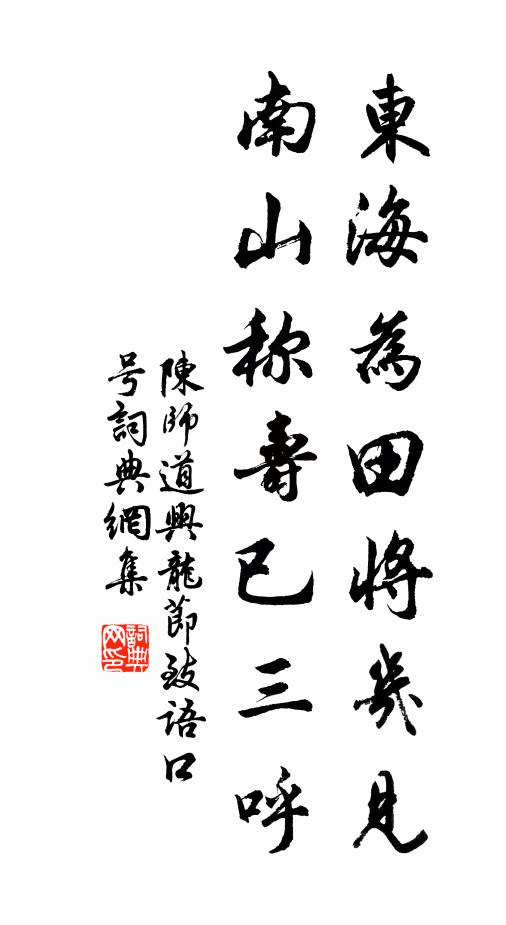 東海為田將幾見
南山称壽已三呼
陳師道興龍節致语口
号詞典網集
詞典網印